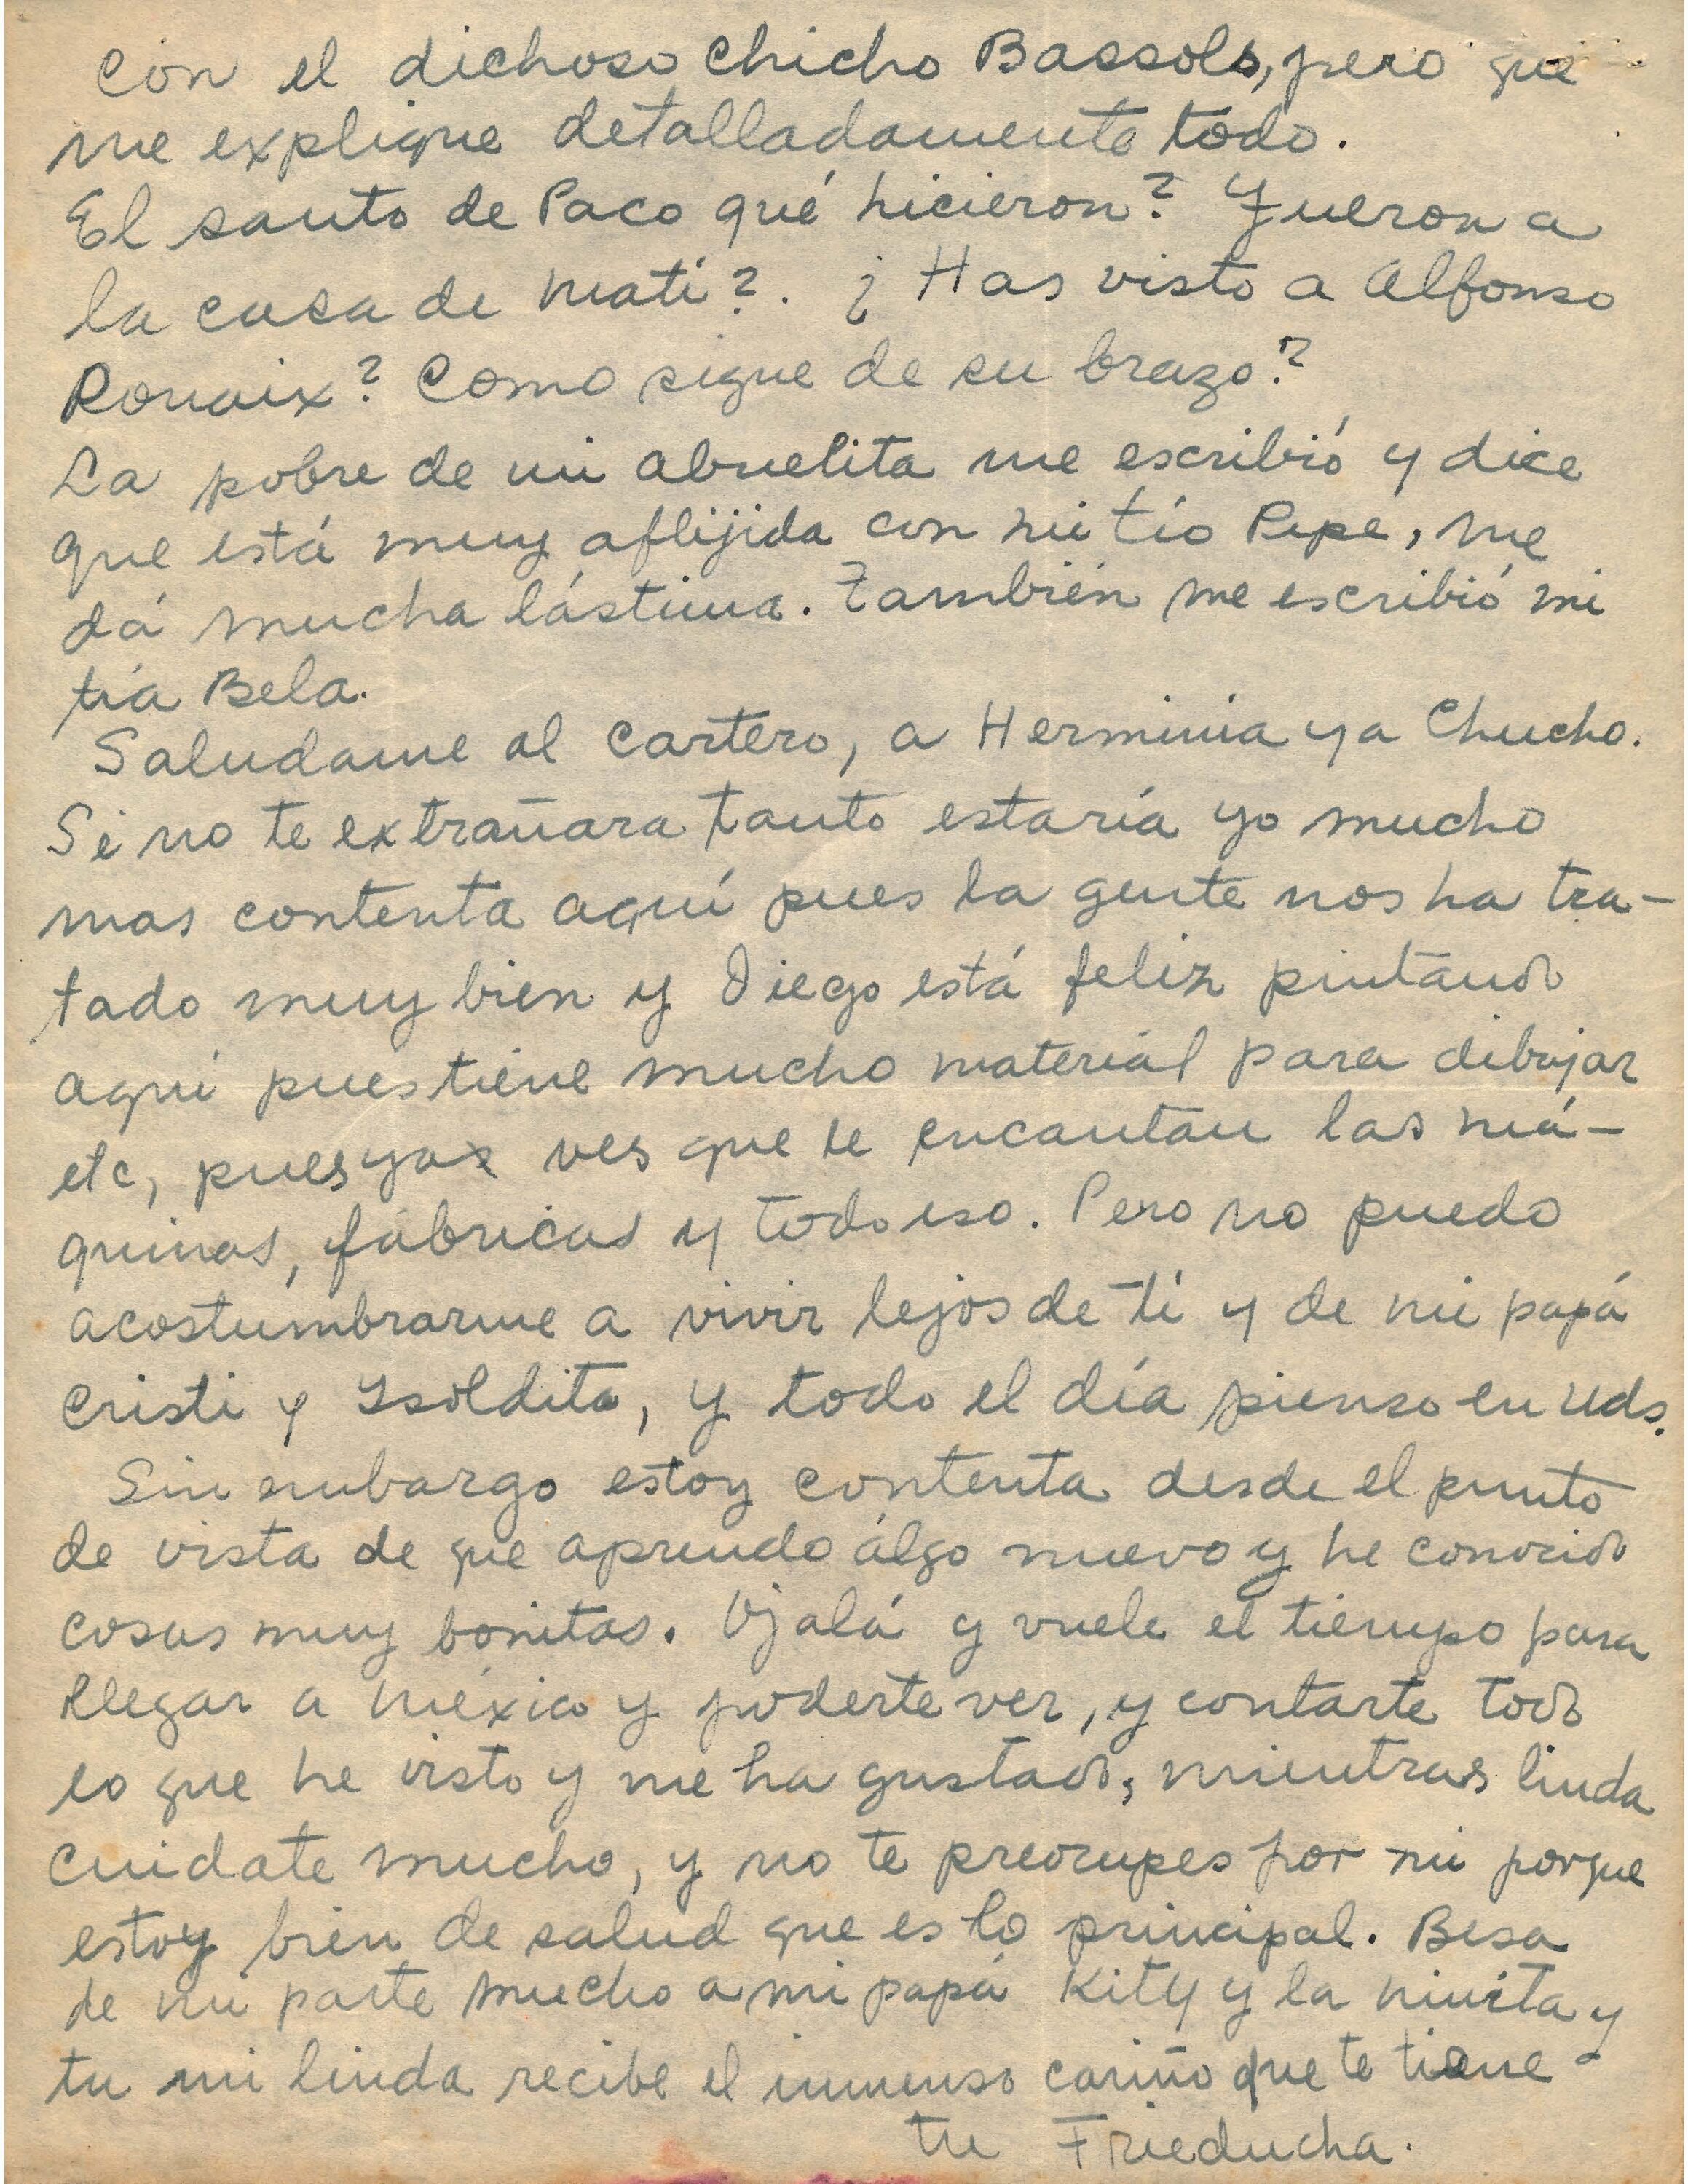 con el dichoso Chicho Bassols, pero que
me explique detalladamente todo.
El santo de Paco qué hicieron? Fueron a
la casa de Mati?. ¿Has visto a Alfonso
Rouaix? Como sigue de su brazo?
La pobre de mi abuelita me escribió y dice
que está muy aflijida con mi tío Pepe, me
dá mucha lástima. También me escribió mi
tía Bela.
Saludame al cartero, a Herminia y a Chucho.
Si no te extrañara tanto estaría yo mucho
mas contenta aquí pues la gente nos ha tra-
tado muy bien y Diego está feliz pintando
aquí pues tiene mucho material para dibujar
etc, pues ya ves que le encantan las má-
quinas, fábricas y todo eso. Pero no puedo
acostumbrarme a vivir lejos de tí y de mi papá
Cristi y Isoldita, y todo el día pienso en Uds.
Sin embargo estoy contenta desde el punto
de vista de que aprendo álgo nuevo y he conocido
cosas muy bonitas. Ojalá y vuele el tiempo para
llegar a México y poderte ver, y contarte todo
lo que he visto y me ha gustado, mientras linda
cuidate mucho, y no te preocupes por mi porque
estoy bien de salud que es lo principal. Besa
de mi parte mucho a mi papá Kity y la niñita y
tu mi linda recibe el inmenso cariño que te tiene
tu Frieducha.